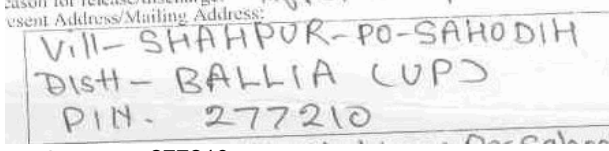 esent Address/Mailing Address:
Vill- SHAHPUR-PO-SAHODIH
Distt- BALLIA (UP)
PIN. 277210